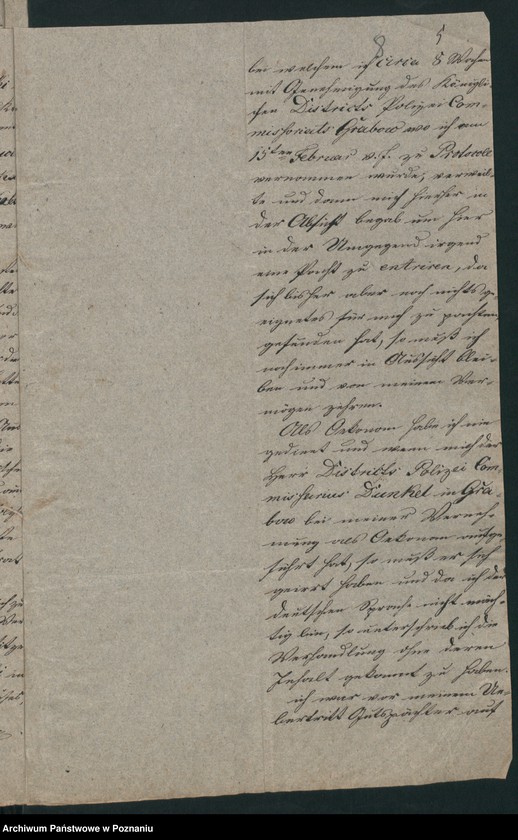 8 5
bei welchem ich circa 8 Wochen
mit Genehmigung des Königli-
chen Districts Polizei Com-
missoriats Grabow wo ich am
15ten Februar v. J. zu Protocoll
vernommen wurde, verweil-
te und dann mich hierher in
der Absicht begab um hier
in der Umgegend irgend
eine Pacht zu entriren, da
sich bisher aber noch nichts ge-
eignetes für mich zu pachten
gefunden hat, so muß ich
noch immer in Aussicht blei-
ben und von meinem Ver-
mögen zehren.
Als Oekonom habe ich nie
gedient und wenn mich der
Herr Districts Polizei Com-
missarius Dunkel in Gra-
bow bei meiner Verneh-
mung als Oekonom aufge-
führt hat, so muß er sich
geirrt haben und da ich der
deutschen Sprache nicht mäch-
tig bin, so unterschrieb ich die
Verhandlung ohne deren
Inhalt gekannt zu haben.
ich war vor meinem Ue-
bertritt Gutspächter auf
Archiwum Państwowe w Poznaniu